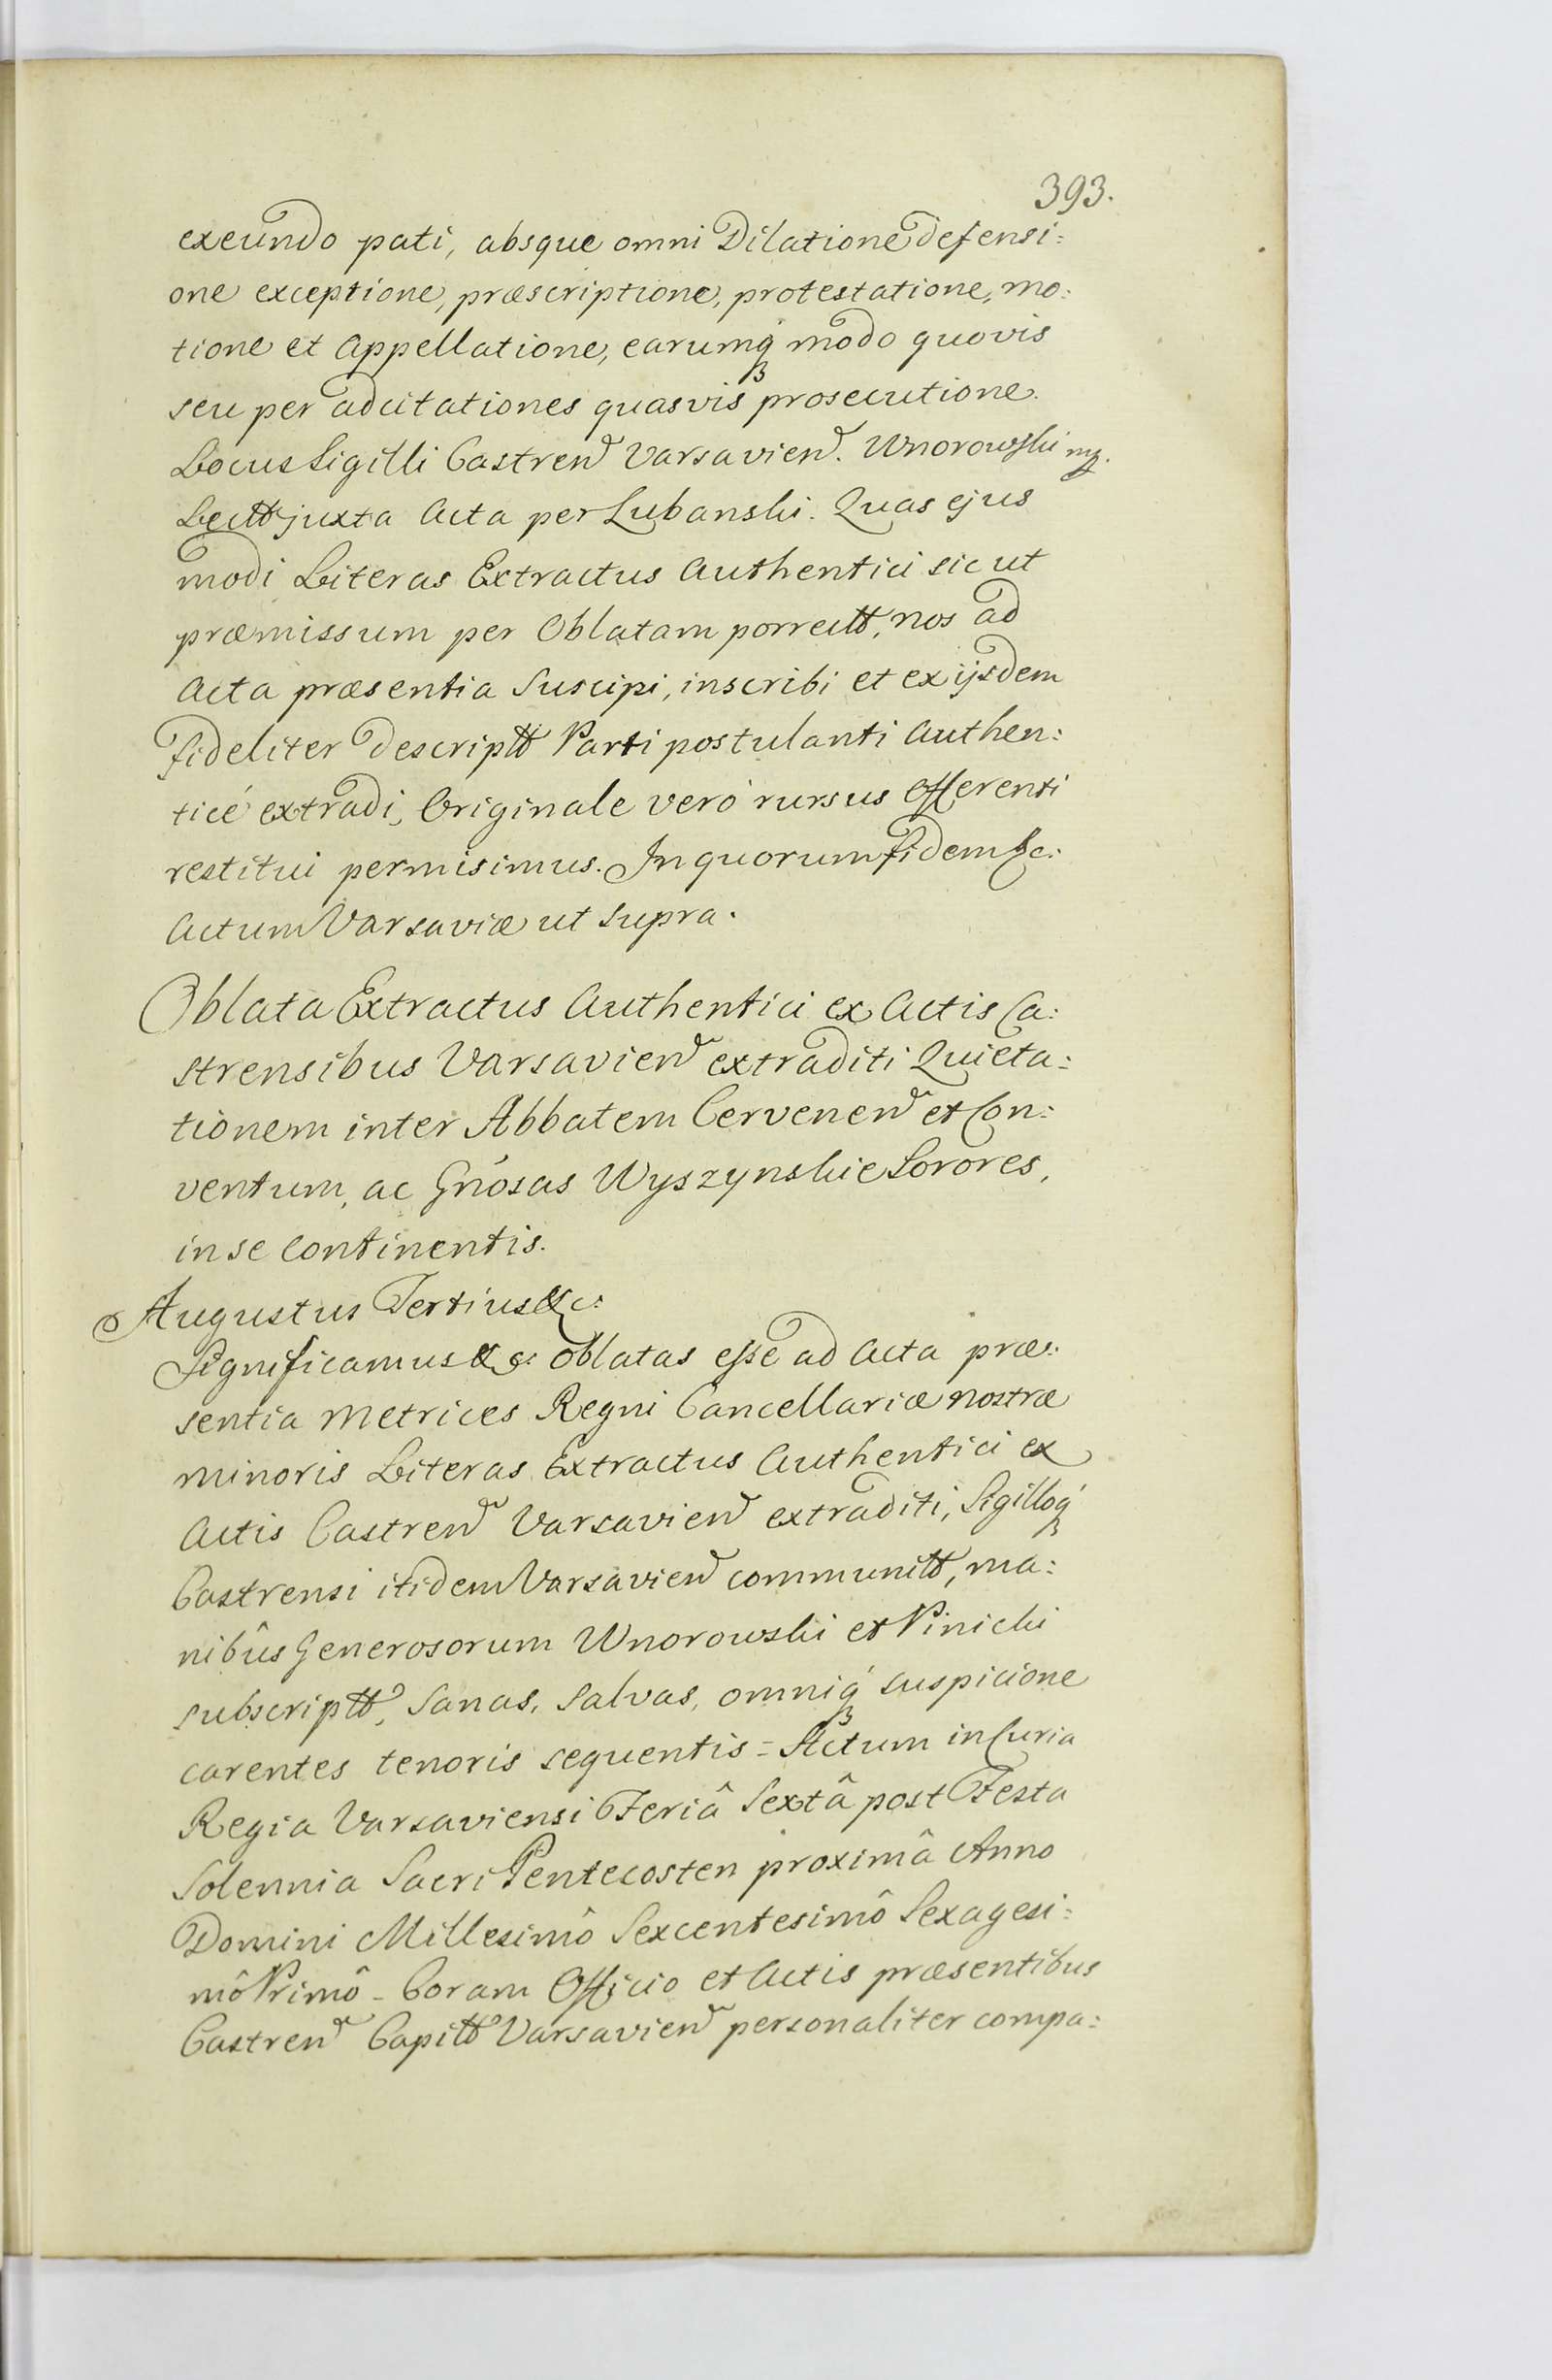 393.
exeundo pati, absque omni Dilatione defensi:
one exceptione, præscriptione, protestatione, mo:
tione et Appellatione, earumq́ modo quovis
seu per adcitationes quasvis prosecutione.
Locus Sigilli Castren̄ Varsavien̄. Wnorowski mp.
Lectt̄ juxta Acta per Lubanski. Quas ejus
modi Literas Extractus Authentici sic ut
præmissum per Oblatam porrectt̄, nos ad
Acta præsentia Suscipi, inscribi et ex ijsdem
fideliter Descriptt̄ Parti postulanti Authen:
ticé extradi, Originale veró rursus Offerenti
restitui permisimus. In quorum fidem &c:
Actum Varsaviæ ut supra.
Oblata Extractus Authentici ex Actis Ca:
strensibus Varsavien̄ extraditi Quieta:
tionem inter Abbatem Cervenen̄ et Con:
ventum, ac Gn̄osas Wyszynskie Sorores,
in se continentis.
Augustus Tertius &c:
Significamus &c: Oblatas esse ad Acta præ:
sentia Metrices Regni Cancellariæ nostræ
minoris Literas Extractus Authentici ex
Actis Castren̄ Varsavien̄ extraditi, Sigilloq́
Castrensi itidem Varsavien̄ communitt̄, ma:
nibûs Generosorum Wnorowski et Pinicki
subscriptt̄, Sanas, Salvas, omniq́ suspicione
carentes tenoris sequentis = Actum in Curia
Regia Varsaviensi Feriâ Sextâ post Festa
Solennia Sacri Pentecosten proximâ Anno
Domini Millesimô Sexcentesimô Sexagesi:
mô Primô - Coram Officio et Actis præsentibus
Castren̄ Capitt̄ Varsavien̄ personaliter compa: